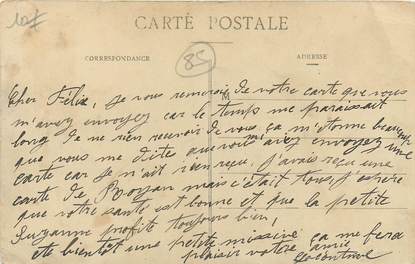 10f
CARTE POSTALE
85
CORRESPONDANCE
ADRESSE
Cher Félix, je vous remercie de votre carte que vous
m'avez envoyez car le temps me paraissait
long de ne rien recevoir de vous, ça m'étonne beaucoup
que vous me dites avoir m'avez envoyez une
carte car je n'ait rien reçu, j'avais reçu une
carte de Royan mais c'était tous, j'espère
que votre santé est bonne et que la petite
Suzanne profit toujours bien,
et bientôt une petite missive ça me fera
plaisir votre amie